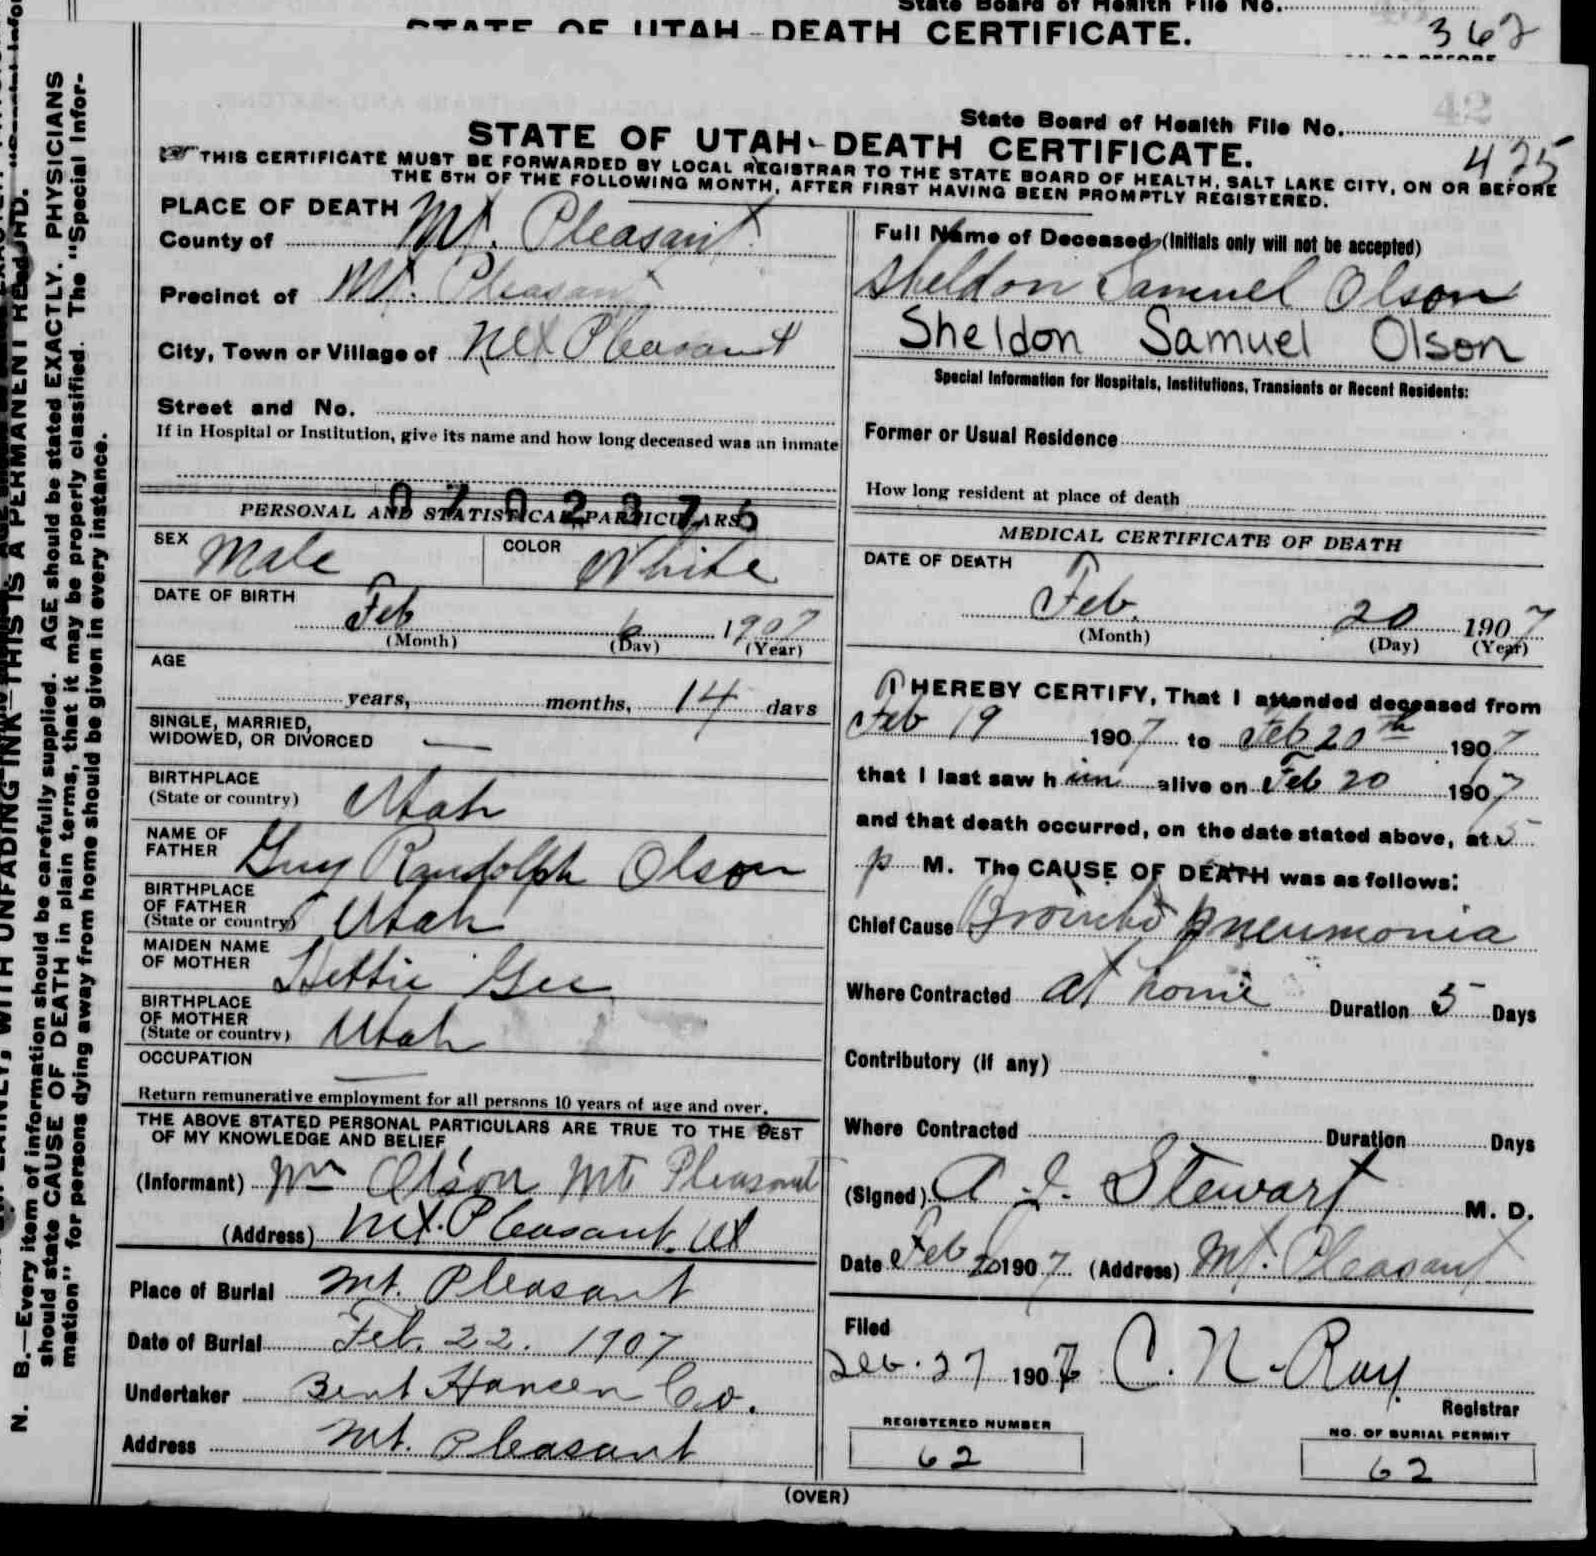 State Board of Health File No.
STATE OF UTAH-DEATH CERTIFICATE.
362
42
State Board of Health File No.
STATE OF UTAH-DEATH CERTIFICATE.
425
THIS CERTIFICATE MUST BE FORWARDED BY LOCAL REGISTRAR TO THE STATE BOARD OF HEALTH, SALT LAKE CITY, ON OR BEFORE
THE 5TH OF THE FOLLOWING MONTH, AFTER FIRST HAVING BEEN PROMPTLY REGISTERED.
PLACE OF DEATH
County of Mt. Pleasant
Precinct of Mt. Pleasant
City, Town or Village of Mt Pleasant
Street and No.
If in Hospital or Institution, give its name and how long deceased was an inmate
0702375
PERSONAL AND STATISTICAL PARTICULARS
SEX Male COLOR White
DATE OF BIRTH
Feb 6 1907
(Month) (Day) (Year)
AGE
years, months, 14 days
SINGLE, MARRIED,
WIDOWED, OR DIVORCED —
BIRTHPLACE
(State or country) Utah
NAME OF
FATHER Guy Randolph Olson
BIRTHPLACE
OF FATHER
(State or country) Utah
MAIDEN NAME
OF MOTHER Hettie Gee
BIRTHPLACE
OF MOTHER
(State or country) Utah
OCCUPATION —
Return remunerative employment for all persons 10 years of age and over.
THE ABOVE STATED PERSONAL PARTICULARS ARE TRUE TO THE BEST
OF MY KNOWLEDGE AND BELIEF
(Informant) Wm Olson Mt Pleasant
(Address) Mt. Pleasant, Ut
Place of Burial Mt. Pleasant
Date of Burial Feb. 22. 1907
Undertaker Bent Hansen Co.
Address Mt. Pleasant
Full Name of Deceased (Initials only will not be accepted)
Sheldon Samuel Olson
Sheldon Samuel Olson
Special Information for Hospitals, Institutions, Transients or Recent Residents:
Former or Usual Residence
How long resident at place of death
MEDICAL CERTIFICATE OF DEATH
DATE OF DEATH
Feb. 20 1907
(Month) (Day) (Year)
I HEREBY CERTIFY, That I attended deceased from
Feb 19 1907 to Feb 20th 1907
that I last saw him alive on Feb 20 1907
and that death occurred, on the date stated above, at 5
p M. The CAUSE OF DEATH was as follows:
Chief Cause Broncho pneumonia
Where Contracted at home Duration 5 Days
Contributory (if any)
Where Contracted Duration Days
(Signed) A. J. Stewart M. D.
Date Feb 20 1907 (Address) Mt. Pleasant
Filed
Feb. 27 1907 C. N. Ray
Registrar
REGISTERED NUMBER
62
NO. OF BURIAL PERMIT
62
(OVER)
N. B.—Every item of information should be carefully supplied. AGE should be stated EXACTLY. PHYSICIANS
should state CAUSE OF DEATH in plain terms, that it may be properly classified. The "Special Infor-
mation" for persons dying away from home should be given in every instance.
WITH UNFADING INK—THIS IS A PERMANENT RECORD.